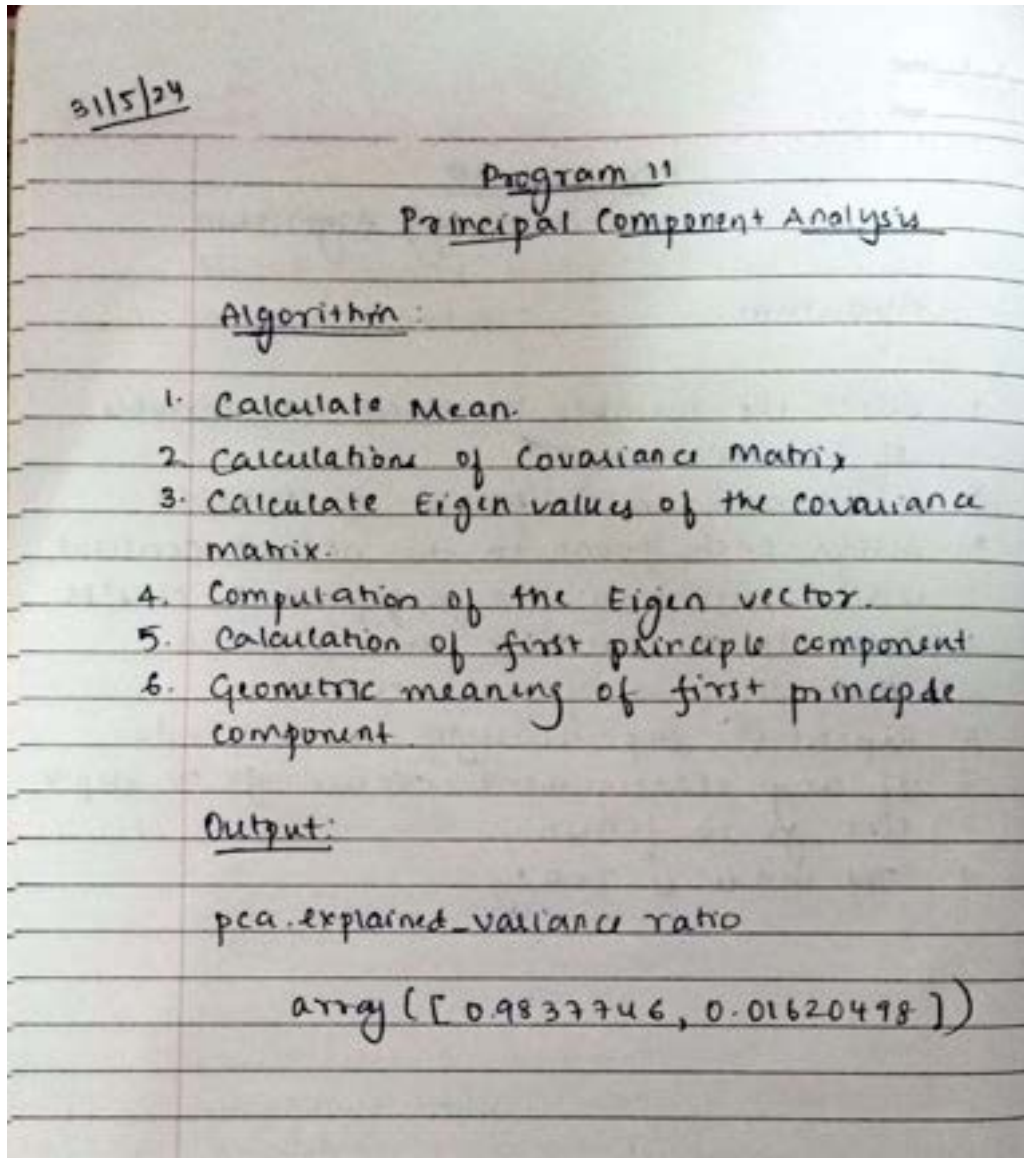 31/5/24
Program 11
Principal Component Analysis
Algorithm:
1. Calculate Mean.
2. Calculations of Covariance Matrix
3. Calculate Eigen values of the covariance
matrix.
4. Computation of the Eigen vector.
5. Calculation of first principle component
6. Geometric meaning of first principle
component.
Output:
pca.explained_variance ratio
array([0.9837746, 0.01620498])